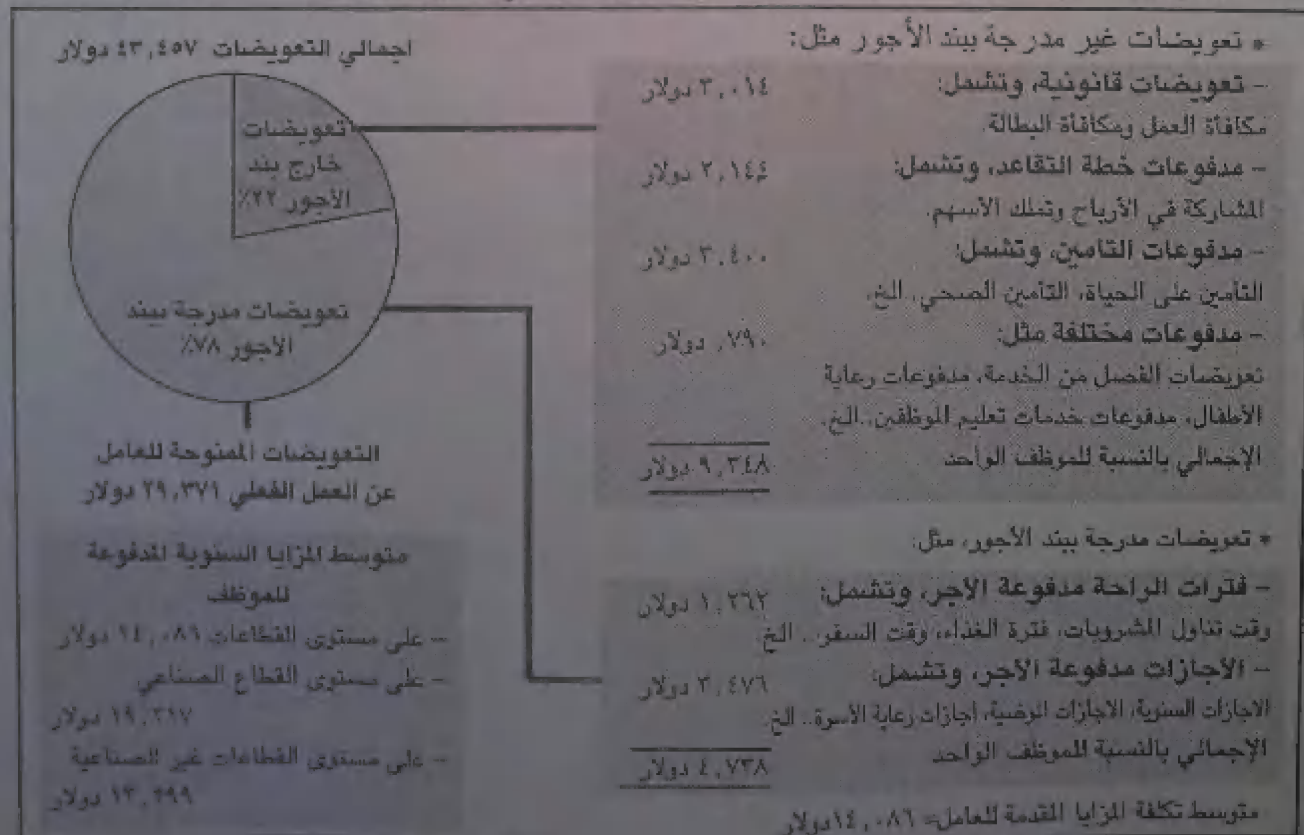 * تعويضات غير مدرجة ببند الأجور مثل:
- تعويضات قانونية، وتشمل: ٣,٠١٤ دولار
مكافأة العمل ومكافأة البطالة.
- مدفوعات خطة التقاعد، وتشمل: ٢,١٤٤ دولار
المشاركة في الأرباح وتملك الأسهم.
- مدفوعات التأمين، وتشمل: ٣,٤٠٠ دولار
التأمين على الحياة، التأمين الصحي.. الخ.
- مدفوعات مختلفة مثل: ٧٩٠, دولار
تعويضات الفصل من الخدمة، مدفوعات رعاية
الأطفال، مدفوعات خدمات تعليم الموظفين.. الخ.
الإجمالي بالنسبة للموظف الواحد ٩,٣٤٨ دولار
* تعويضات مدرجة ببند الأجور، مثل:
- فترات الراحة مدفوعة الأجر، وتشمل: ١,٢٦٢ دولار
وقت تناول المشروبات، فترة الغذاء، وقت السفر... الخ.
- الأجازات مدفوعة الأجر، وتشمل: ٣,٤٧٦ دولار
الاجازات السنوية، الاجازات المرضية، أجازات رعاية الأسرة.. الخ.
الإجمالي بالنسبة للموظف الواحد ٤,٧٣٨ دولار
متوسط تكلفة المزايا المقدمة للعامل= ١٤,٠٨٦ دولار
اجمالي التعويضات ٤٣,٤٥٧ دولار
تعويضات
خارج بند
الأجور ٢٢٪
تعويضات مدرجة ببند
الأجور ٧٨٪
التعويضات الممنوحة للعامل
عن العمل الفعلي ٢٩,٣٧١ دولار
متوسط المزايا السنوية المدفوعة
للموظف
- على مستوى القطاعات ١٤,٠٨٦ دولار
- على مستوى القطاع الصناعي
دولار
- على مستوى القطاعات غير الصناعية
دولار